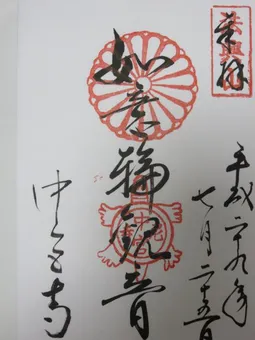 奉拝
平成二十九年
七月二十五日
如意輪観音
中宮寺